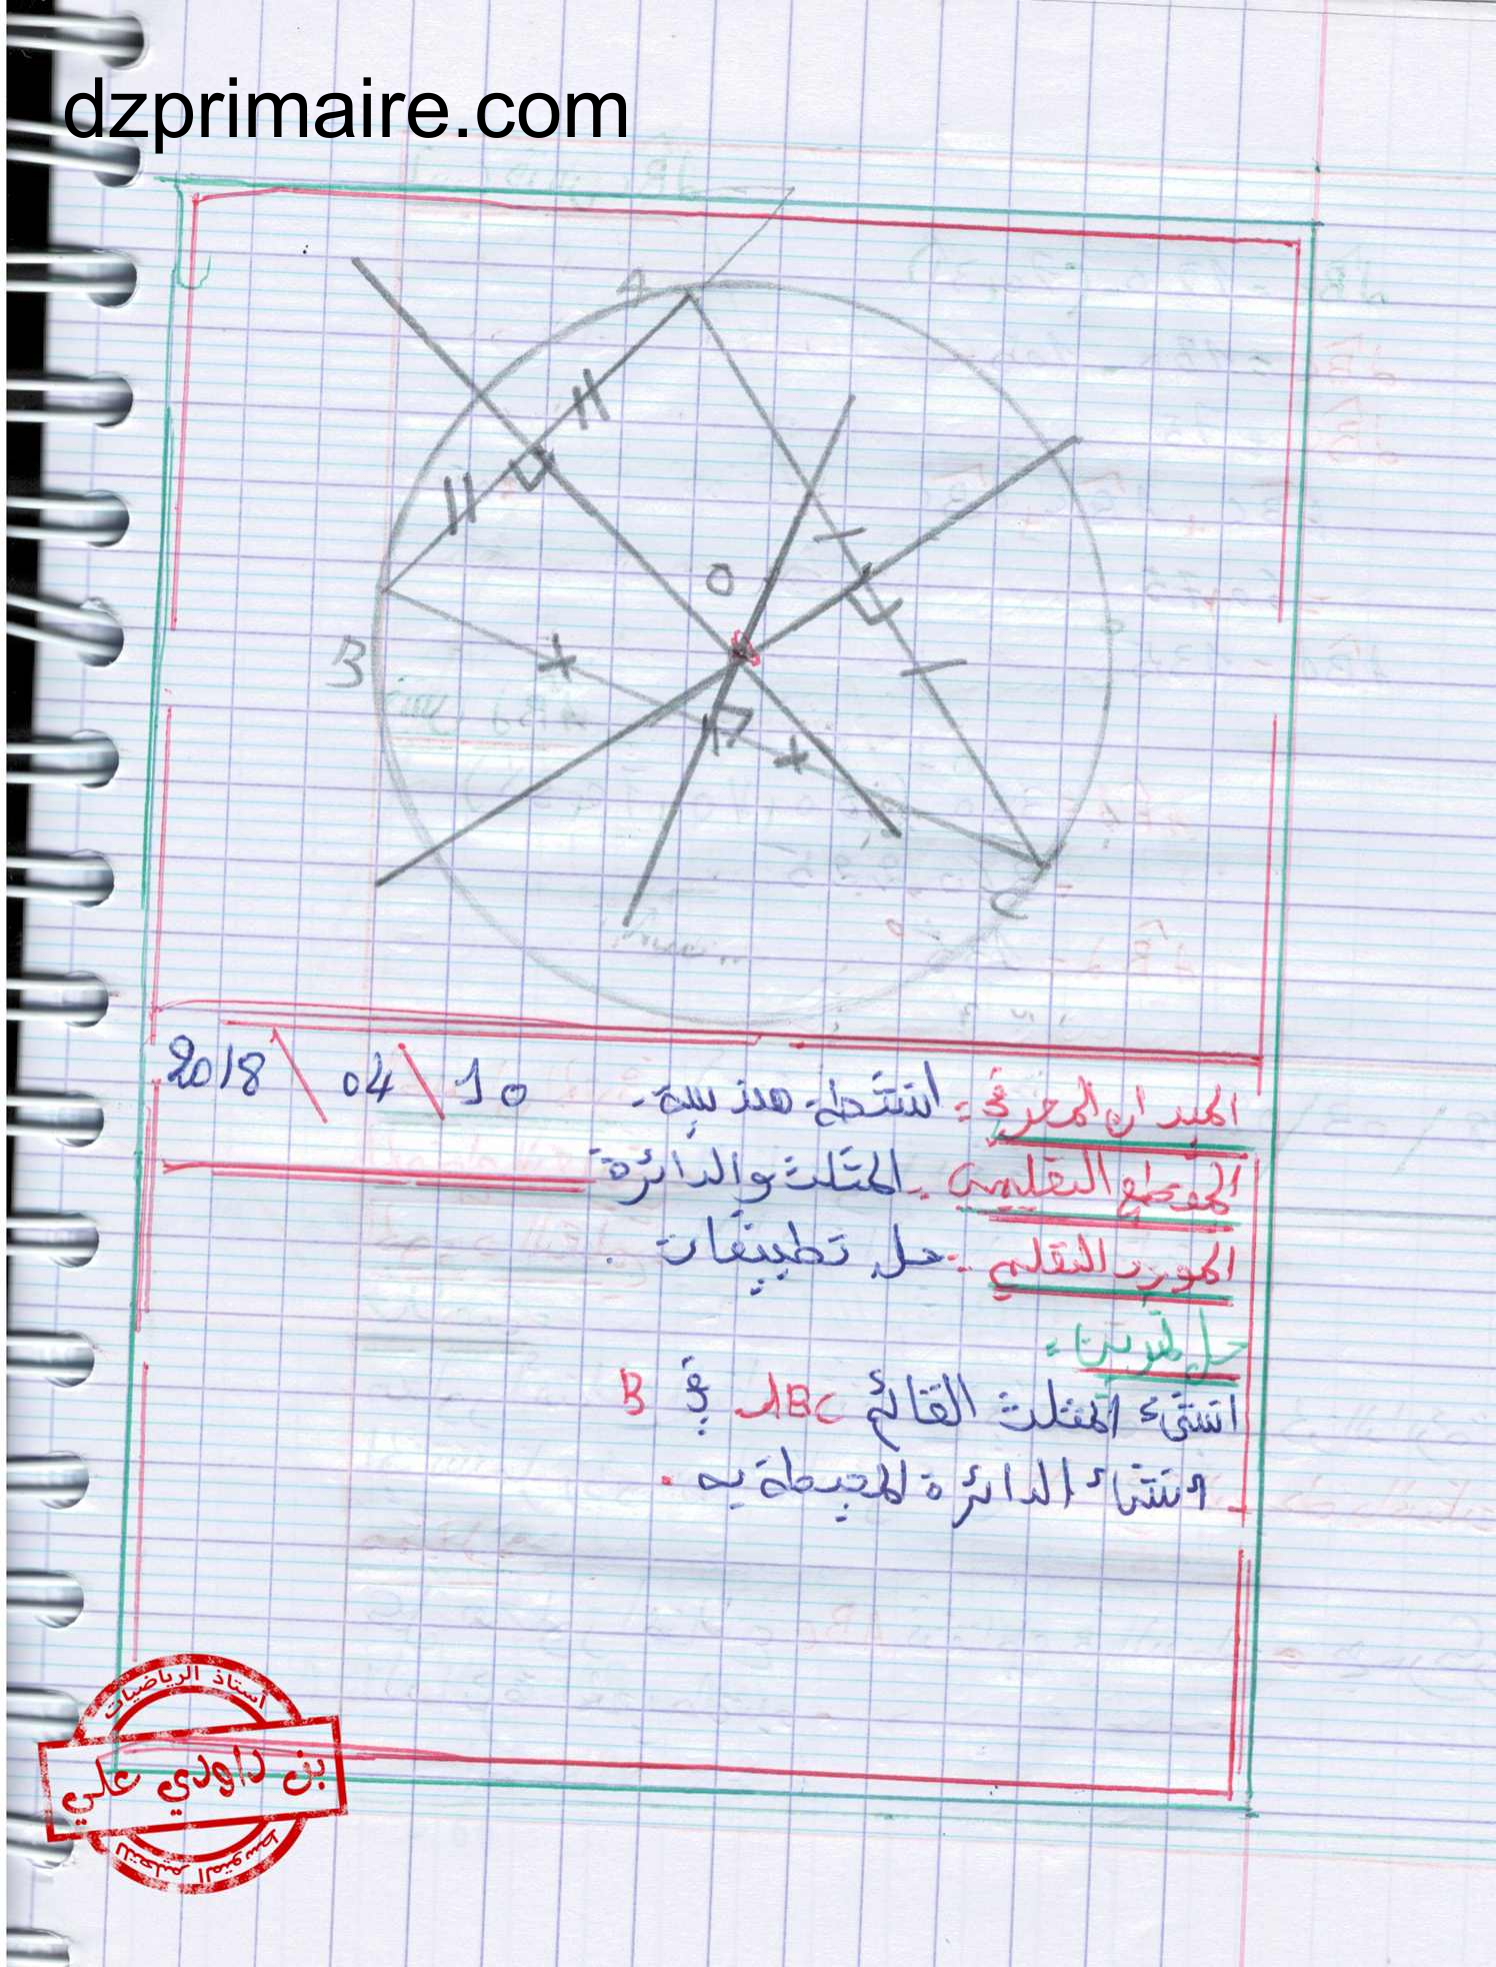 dzprimaire.com
A
O
B
C
2018 \ 04 \ 10
الميدان المعرفي : انشطة هندسية .
المقطع التعليمي : المثلث والدائرة
المورد التعليمي : حل تطبيقات .
حل تمرين :
انشئ المثلث القائم ABC في B
انشاء الدائرة المحيطة به .
أستاذ الرياضيات
بن داودي علي
للتعليم المتوسط